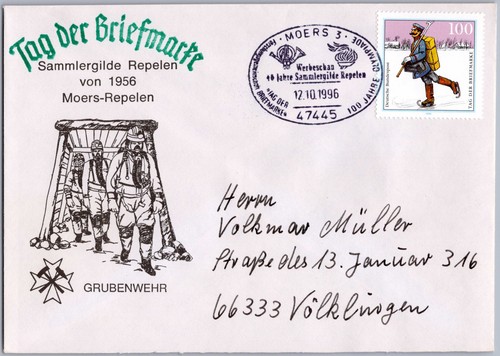 Tag der Briefmarke
Sammlergilde Repelen
von 1956
Moers-Repelen
GRUBENWEHR
MOERS 3
Werbeschau
40 Jahre Sammlergilde Repelen
"TAG DER
BRIEFMARKE"
12.10.1996
47445
100 JAHRE
100
TAG DER BRIEFMARKE
Deutsche Bundespost
Herrn
Volkmar Müller
Straße des 13. Januar 316
66333 Völklingen